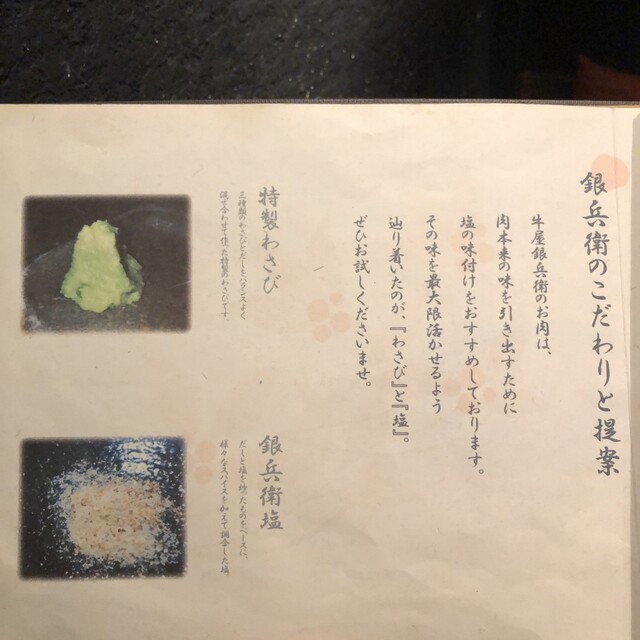 銀兵衛のこだわりと提案
牛屋銀兵衛のお肉は、
肉本来の味を引き出すために
塩の味付けをおすすめしております。
その味を最大限活かせるよう
辿り着いたのが、『わさび』と『塩』。
ぜひお試しくださいませ。
特製わさび
三種類のわさびとだしをバランスよく
混ぜ合わせて作った特製のわさびです。
銀兵衛塩
だしと塩を炒ったものをベースに、
様々なスパイスを加えて調合した塩。